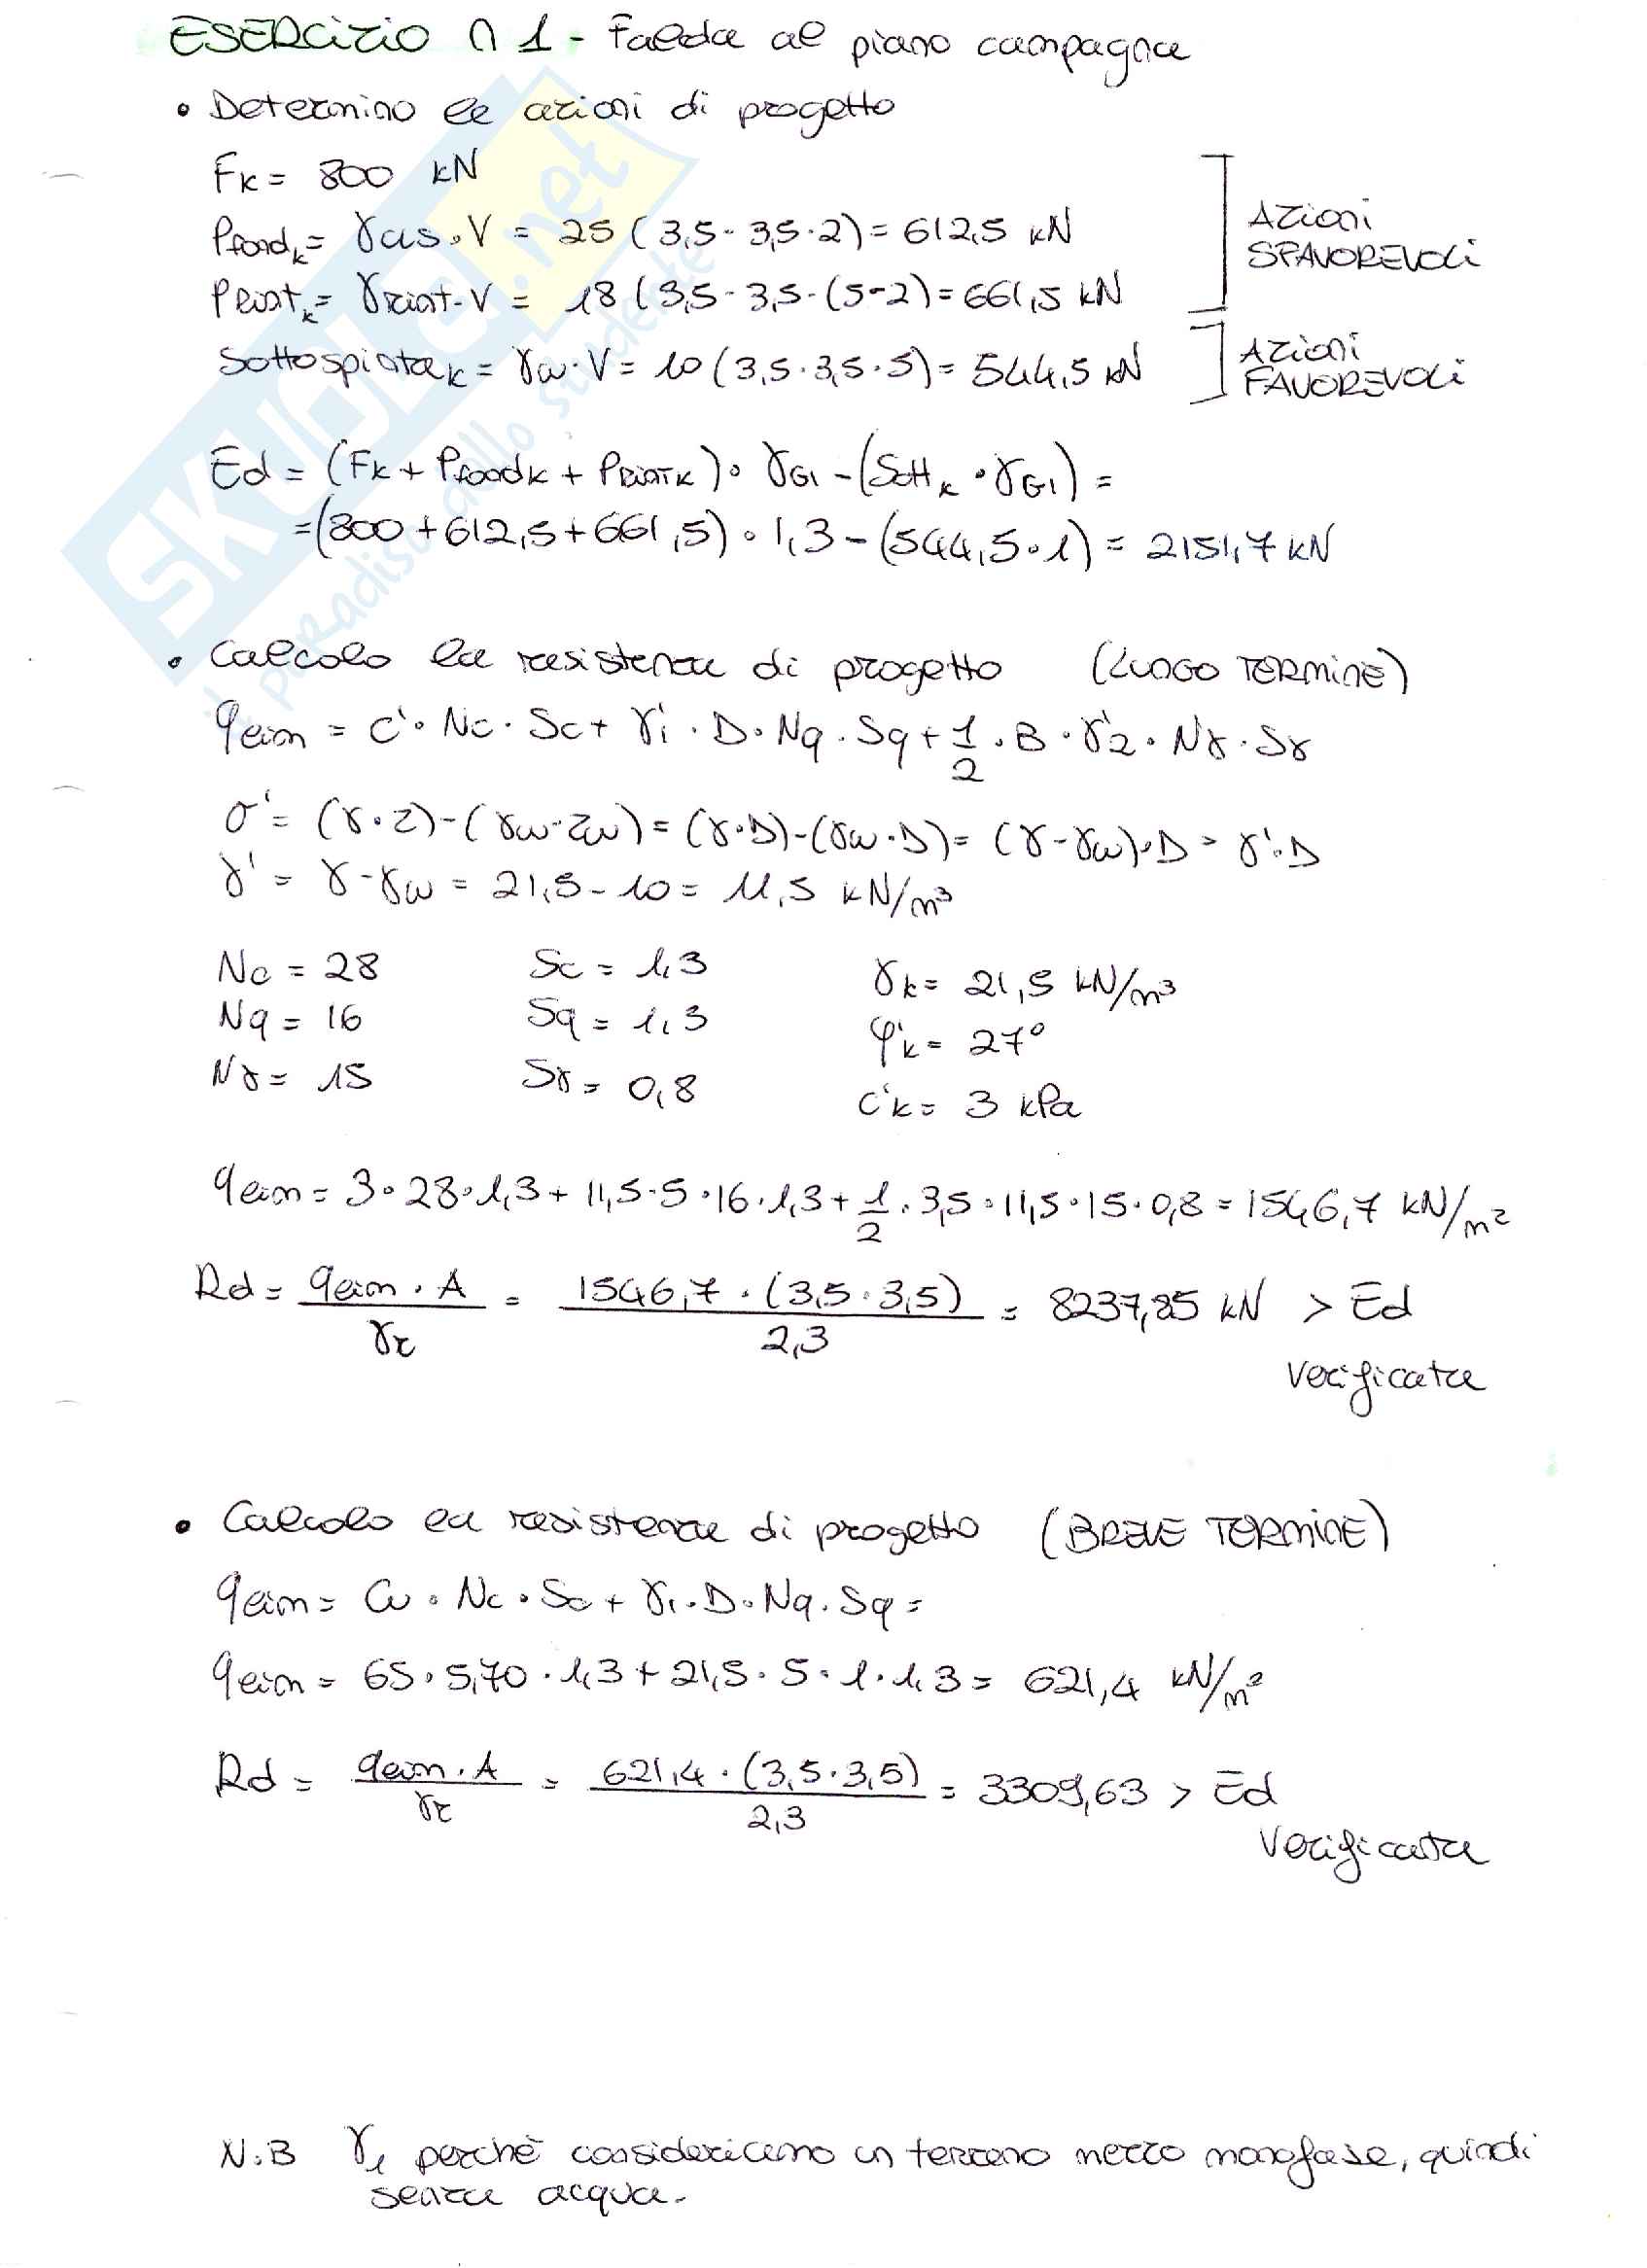 ESERCIZIO N 1 - Falda al piano campagna
• Determino le azioni di progetto
Fk = 800 kN
Pfond_k = γcls · V = 25 (3,5 · 3,5 · 2) = 612,5 kN
Print_k = γrint · V = 18 (3,5 · 3,5 · (5-2) = 661,5 kN
AZIONI SFAVOREVOLI
Sottospinta_k = γw · V = 10 (3,5 · 3,5 · 5) = 544,5 kN
AZIONI FAVOREVOLI
Ed = (Fk + Pfond_k + Print_k) · γG1 - (Sott_k · γG1) =
= (800 + 612,5 + 661,5) · 1,3 - (544,5 · 1) = 2151,7 kN
• Calcolo la resistenza di progetto (LUNGO TERMINE)
qlim = c' · Nc · Sc + γ'1 · D · Nq · Sq + 1/2 · B · γ'2 · Nγ · Sγ
σ' = (γ · z) - (γw · zw) = (γ · D) - (γw · D) = (γ - γw) · D = γ' · D
γ' = γ - γw = 21,5 - 10 = 11,5 kN/m³
Nc = 28 Sc = 1,3 γk = 21,5 kN/m³
Nq = 16 Sq = 1,3 φ'k = 27°
Nγ = 15 Sγ = 0,8 c'k = 3 kPa
qlim = 3 · 28 · 1,3 + 11,5 · 5 · 16 · 1,3 + 1/2 · 3,5 · 11,5 · 15 · 0,8 = 1546,7 kN/m²
Rd = qlim · A / γr = 1546,7 · (3,5 · 3,5) / 2,3 = 8237,85 kN > Ed
Verificata
• Calcolo la resistenza di progetto (BREVE TERMINE)
qlim = Cu · Nc · Sc + γ1 · D · Nq · Sq =
qlim = 65 · 5,70 · 1,3 + 21,5 · 5 · 1 · 1,3 = 621,4 kN/m²
Rd = qlim · A / γr = 621,4 · (3,5 · 3,5) / 2,3 = 3309,63 > Ed
Verificata
N.B γ1 perchè consideriamo un terreno mezzo monofase, quindi
senza acqua.
SKUOLA.net
il paradiso dello studente